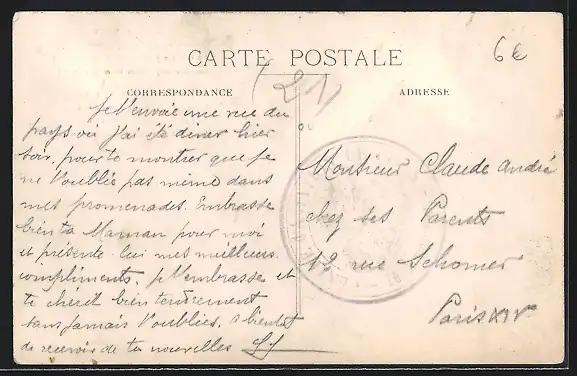 CARTE POSTALE
6€
(21)
CORRESPONDANCE
ADRESSE
Je t'envoie une vue du
pays ou j'ai été diner hier
soir, pour te montrer que je
ne t'oublie pas même dans
mes promenades. Embrasse
bien ta Maman pour moi
et présente lui mes meilleurs
compliments. Je t'embrasse et
te chérit bien tendrement
sans jamais t'oublier. A bientot
de recevoir de tes nouvelles
Monsieur Claude André
chez ses Parents
12 rue Schomer
Paris XIV